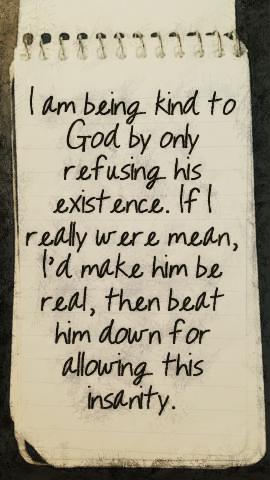 I am being kind to
God by only
refusing his
existence. If I
really were mean,
I'd make him be
real, then beat
him down for
allowing this
insanity.